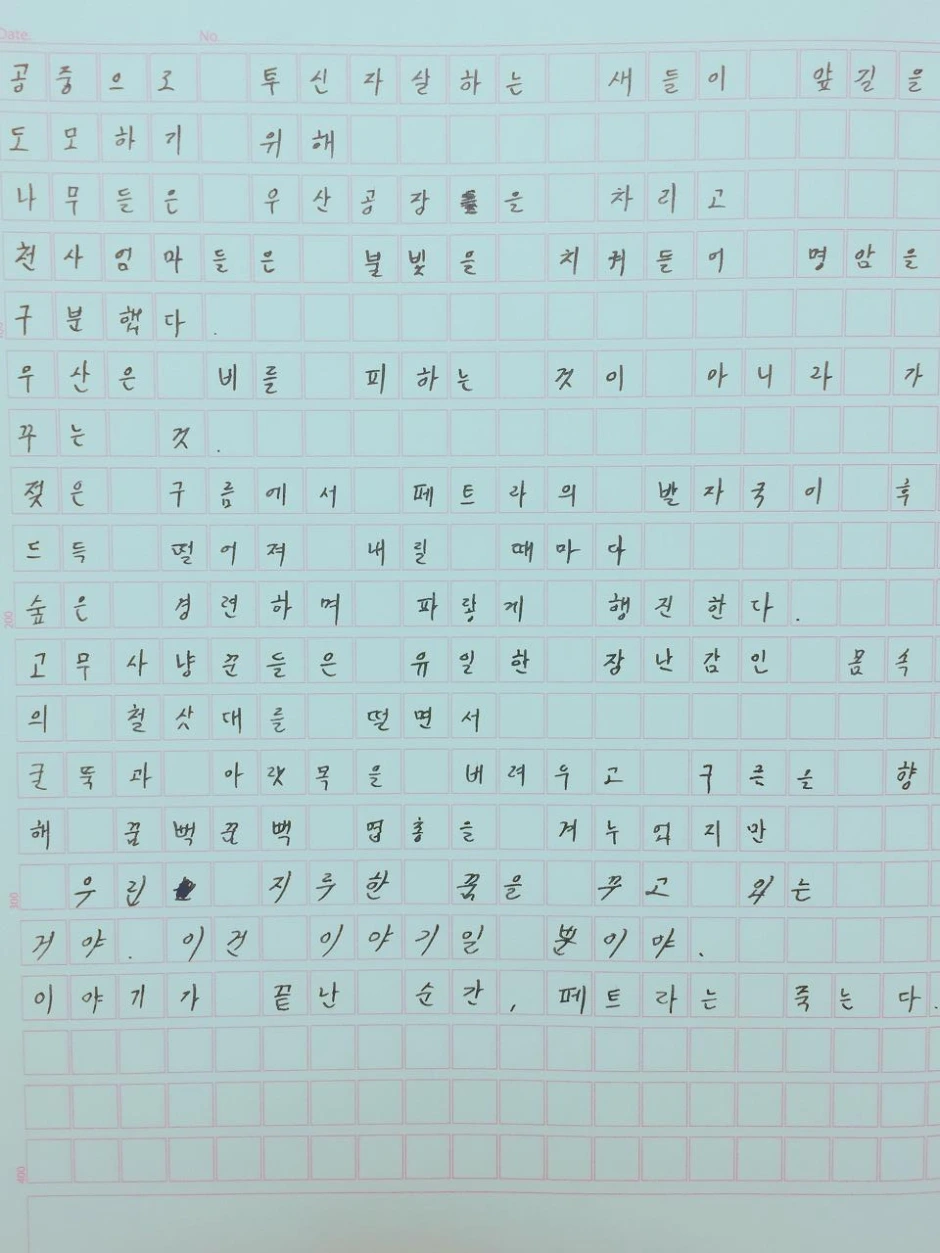 Date. No.
공중으로 투신자살하는 새들이 앞길을
도모하기 위해
나무들은 우산공장을 차리고
천사엄마들은 불빛을 치켜들어 명암을
구분했다.
우산은 비를 피하는 것이 아니라 가
꾸는 것.
젖은 구름에서 페트라의 발자국이 후
드득 떨어져 내릴 때마다
200 숲은 경련하며 파랗게 행진한다.
고무사냥꾼들은 유일한 장난감인 몸속
의 철삿대를 떨면서
굴뚝과 아랫목을 버려우고 구름을 향
해 꿈뻑꿈뻑 엽총을 겨누었지만
300 우린 지루한 꿈을 꾸고 있는
거야. 이건 이야기일 뿐이야.
이야기가 끝난 순간, 페트라는 죽는다.
400